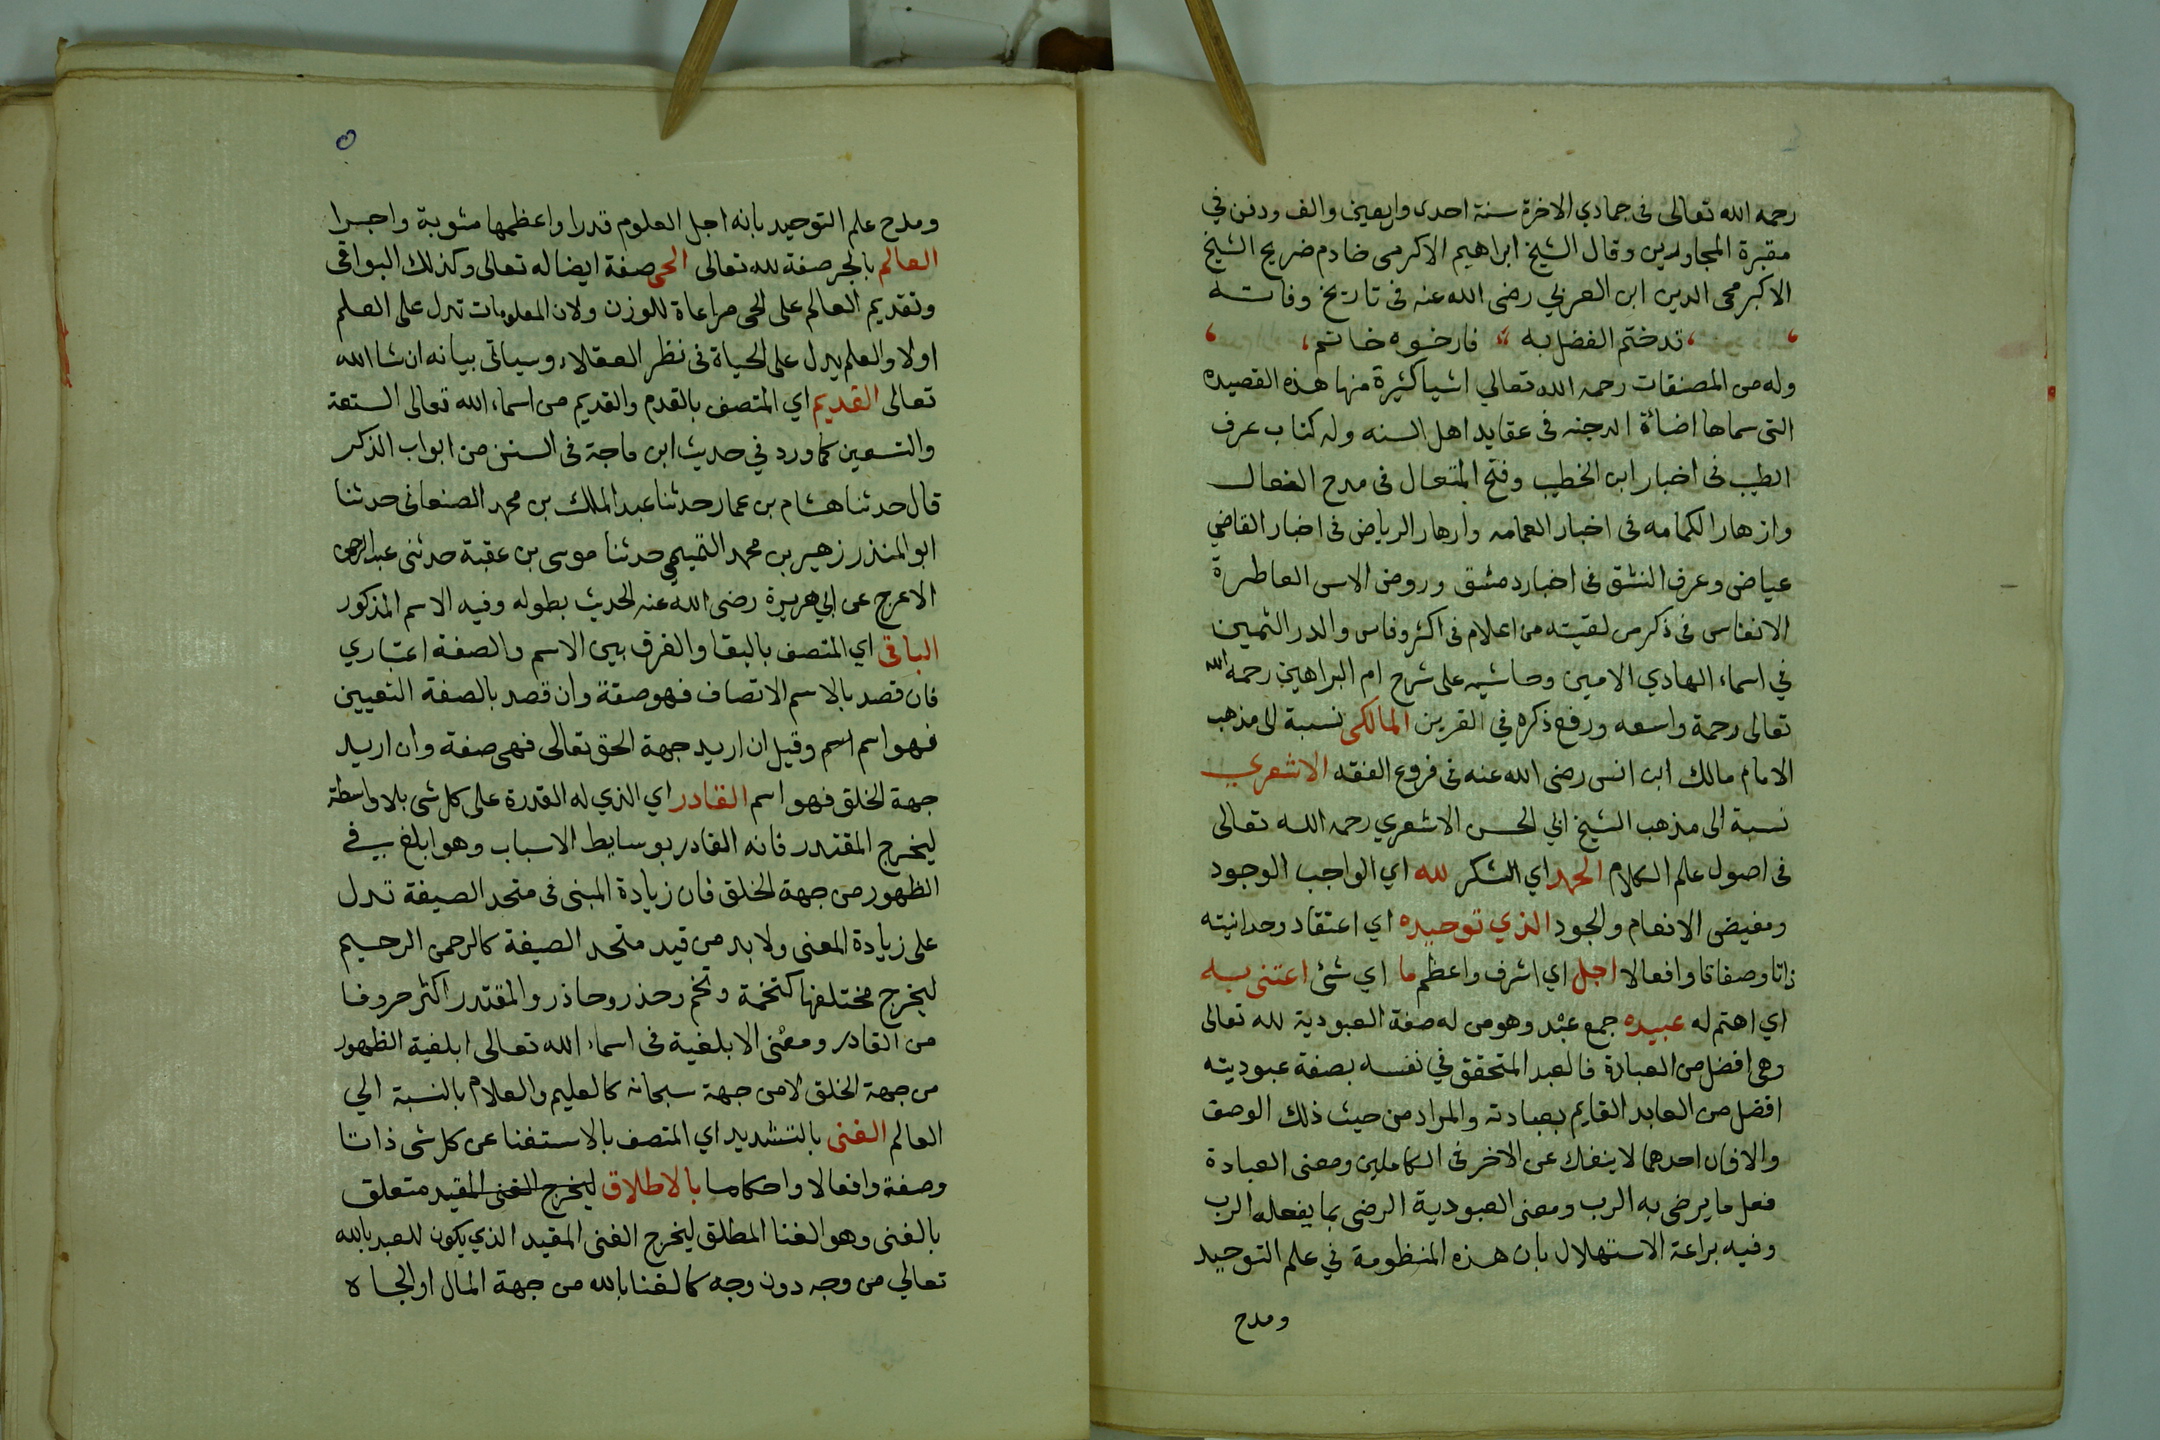 رحمه الله تعالى فى جمادي الاخرة سنة احدى واربعين والف ودفن في
مقبرة المجاورين وقال الشيخ ابراهيم الاكرمى خادم ضريح الشيخ
الاكبر محى الدين ابن العربي رضى الله عنه فى تاريخ وفاته
قد ختم الفضل به فارخوه خاتم
وله من المصنفات رحمه الله تعالي اشيا كثيرة منها هذه القصيده
التى سماها اضائة الدجنه فى عقايد اهل السنه وله كتاب عرف
الطيب فى اخبار ابن الخطيب وفتح المتعال فى مدح النعال
وازهار الكمامه فى اخبار العمامه وازهار الرياض فى اخبار القاضي
عياض وعرف النشق فى اخبار دمشق وروض الاس العاطرة
الانفاس فى ذكر من لقيته من اعلام فى اكثر وفاس والدر الثمين
في اسماء الهادي الامين وحاشيه على شرح ام البراهين رحمه الله
تعالى رحمة واسعه ورفع ذكره في القرين المالكى نسبة الى مذهب
الامام مالك ابن انس رضى الله عنه فى فروع الفقه الاشعري
نسبة الى مذهب الشيخ ابي الحسن الاشعري رحمه الله تعالى
فى اصول علم الكلام الحمد اي الشكر لله اي الواجب الوجود
ومفيض الانعام والجود الذي توحيده اي اعتقاد وحدانيته
ذاتا وصفاتا وافعالا اجل اي اشرف واعظم ما اي شئ اعتنى به
اي اهتم له عبيده جمع عبد وهو من له صفة العبودية لله تعالى
وهى افضل من العبادة فالعبد المتحقق في نفسه بصفة عبوديته
افضل من العابد القايم بعبادته والمراد من حيث ذلك الوصف
والا فان احدهما لا ينفك عن الاخر فى الكاملين ومعنى العبادة
فعل ما يرضى به الرب ومعنى العبودية الرضى بما يفعله الرب
وفيه براعة الاستهلال بان هذه المنظومة في علم التوحيد
ومدح
٥
ومدح علم التوحيد بانه اجل العلوم قدرا واعظمها مثوبة واجرا
العالم بالجر صفة لله تعالى الحى صفة ايضا له تعالى وكذلك البواقى
وتقديم العالم على الحى مراعاة للوزن ولان المعلومات تدل على العلم
اولا والعلم يدل على الحياة فى نظر العقلاء وسياتى بيانه ان شا الله
تعالى القديم اي المتصف بالقدم والقديم من اسماء الله تعالى التسعة
والتسعين كما ورد في حديث ابن ماجة فى السنن من ابواب الذكر
قال حدثنا هشام بن عمار حدثنا عبد الملك بن محمد الصنعانى حدثنا
ابو المنذر زهير بن محمد التميمي حدثنا موسى بن عقبة حدثنى عبد الرحمن
الاعرج عن ابي هريرة رضى الله عنه الحديث بطوله وفيه الاسم المذكور
الباقى اي المتصف بالبقا والفرق بين الاسم والصفة اعتباري
فان قصد بالاسم الاتصاف فهو صفة وان قصد بالصفة التعيين
فهو اسم اسم وقيل ان اريد جهة الحق تعالى فهى صفة وان اريد
جهة الخلق فهو اسم القادر اي الذي له القدرة على كل شى بلا واسطة
ليخرج المقتدر فانه القادر بوسايط الاسباب وهو ابلغ في
الظهور من جهة الخلق فان زيادة المبنى فى متحد الصيغة تدل
على زيادة المعنى ولا بد من قيد متحد الصيغة كالرحمن الرحيم
ليخرج مختلفها كتخمة وتخم وحذر وحاذر والمقتدر اكثر حروفا
من القادر ومعنى الابلغية فى اسماء الله تعالى ابلغية الظهور
من جهة الخلق لا من جهة سبحانه كالعليم والعلام بالنسبة الي
العالم الغنى بالتشديد اي المتصف بالاستغنا عن كل شى ذاتا
وصفة وافعالا واحكاما بالاطلاق ليخرج الغنى المقيد متعلق
بالغنى وهو الغنا المطلق ليخرج الغنى المقيد الذي يكون للعبد بالله
تعالي من وجه دون وجه كالغنا بالله من جهة المال او الجاه